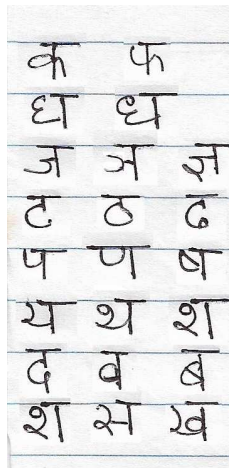 क फ
घ ध
ज
ट ठ ढ
प ण ष
य थ श
द व ब
श स ख